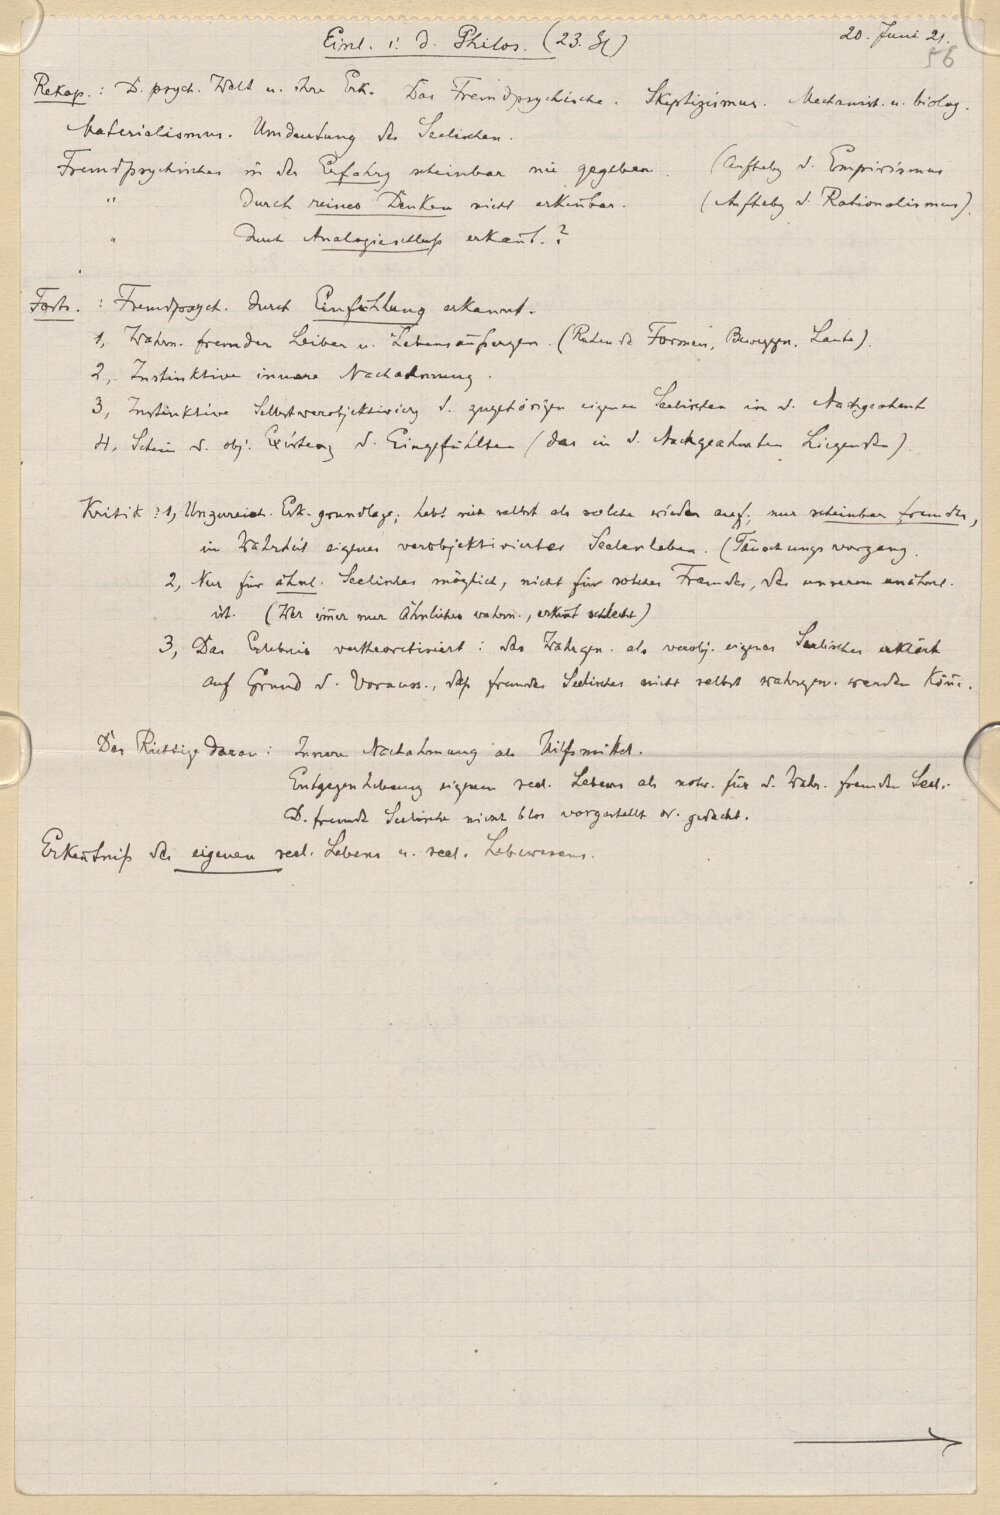 Einl. i. d. Philos. (23. St)
20. Juni 21.
56
Rekap.: D. psych. Welt u. ihre Erk. Das Fremdpsychische. Skeptizismus. Mechanist. u. biolog.
Materialismus. Umdeutung des Seelischen.
Fremdpsychisches in der Erfahrg scheinbar nie gegeben. (Aufhebg d. Empirismus
" durch reines Denken nicht erkennbar. (Aufhebg d. Rationalismus).
" durch Analogieschluß erkannt.?
Forts.: Fremdpsych. durch Einfühlung erkannt.
1, Wahrn. fremder Leiber u. Lebensäußergen. (Ruhende Formen, Beweggen, Laute).
2, Instinktive innere Nachahmung.
3, Instinktive Selbstverobjektivierg d. zugehörigen eigenen Seelischen in d. Nachgeahmte
4, Schein d. obj. Existenz d. Eingefühlten (das in d. Nachgeahmten Liegenden).
Kritik: 1, Unzureich. Erk.grundlage; hebt sich selbst als solche wieder auf; nur scheinbar fremdes,
in Wahrheit eigenes verobjektiviertes Seelenleben. (Täuschungsvorgang.
2, Nur für ähnl. Seelisches möglich, nicht für solches Fremdes, das unserem unähnl.
ist. (Wer immer nur Ähnliches wahrn., erkennt schlecht)
3, Das Erlebnis vertheoretisiert: das Wahrgen. als verobj. eigenes Seelisches erklärt
auf Grund d. Vorauss., daß fremdes Seelisches nicht selbst wahrgen. werden könne.
Das Richtige daran: Innere Nachahmung als Hilfsmittel.
Entgegenhebung eigenen seel. Lebens als notw. für d. Wahr. fremden Seel.
D. fremde Seelische nicht blos vorgestellt od. gedacht.
Erkenntniß des eigenen seel. Lebens u. seel. Lebewesens.